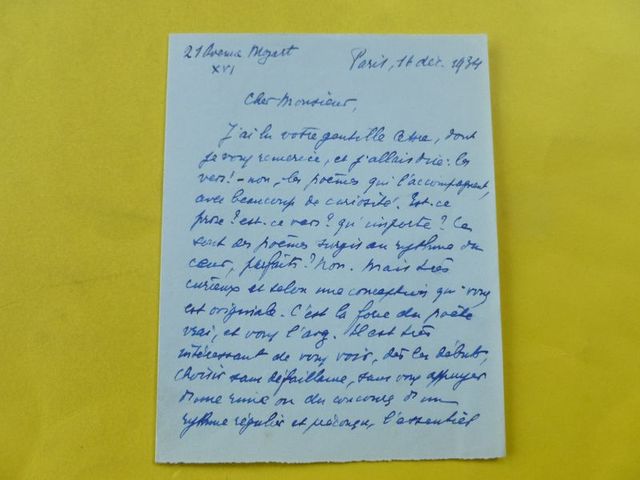 21 Avenue Mozart
XVI
Paris, 16 déc. 1934
Cher Monsieur,
J'ai lu votre gentille lettre, dont
je vous remercie, et j'allais dire: les
vers! - non, les poèmes qui l'accompagnent,
avec beaucoup de curiosité. Est-ce
prose? est-ce vers? qu'importe? Ce
sont des poèmes surgis au rythme du
cœur, parfaits? Non. Mais très
curieux et selon une conception qui vous
est originale. C'est la force du poète
vrai, et vous l'avez. Il est très
intéressant de vous voir, dès les débuts,
choisir sans défaillance, sans vous appuyer
d'une rime ou du concours d'un
rythme régulier et préconçu, l'essentiel